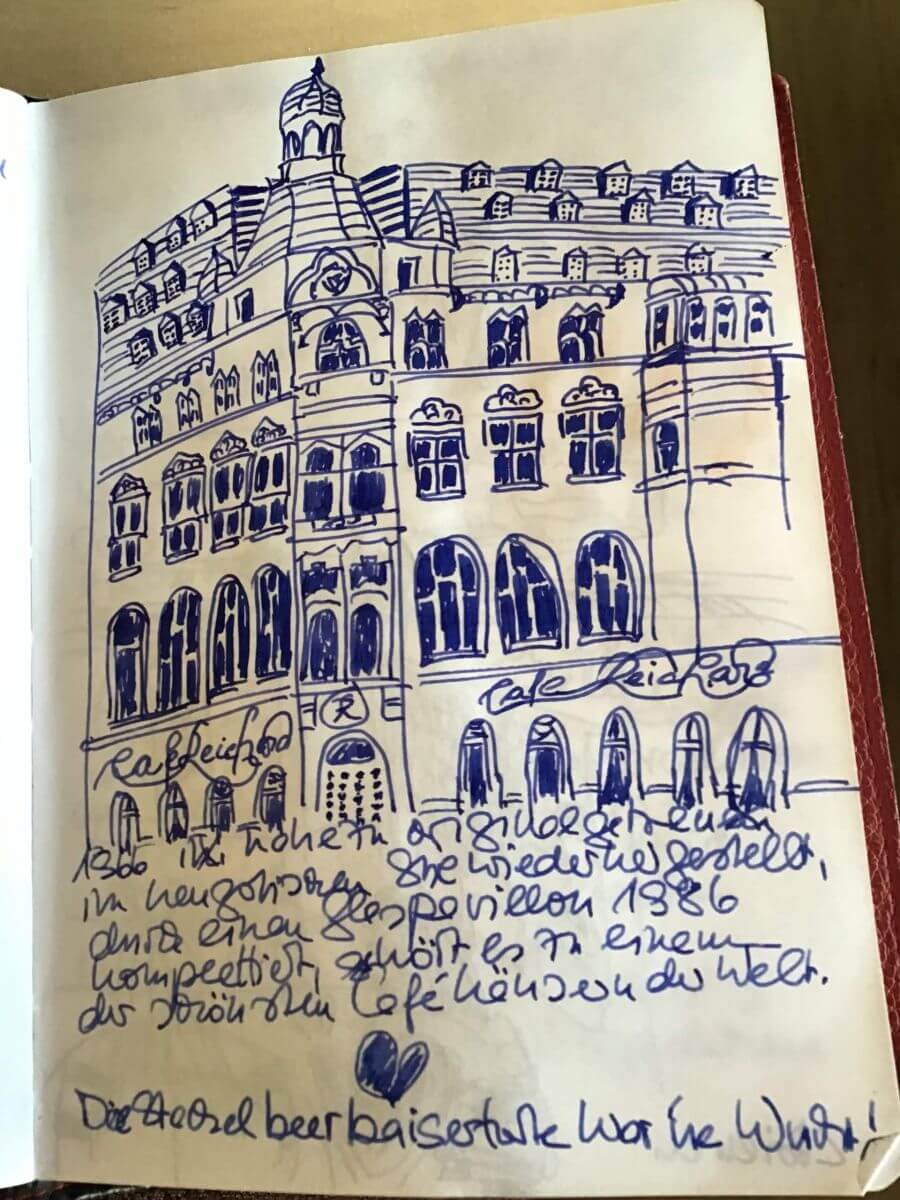 Cafe Reichard
R
Café Reichard
originalgetreuem
im neugotischen wiederhergestellt,
durch einen Glaspavillon 1986
komplettiert, gehört es zu einem
der schönsten Caféhäusern der Welt.
Die Stachelbeerbaisertorte war 'ne Wucht!